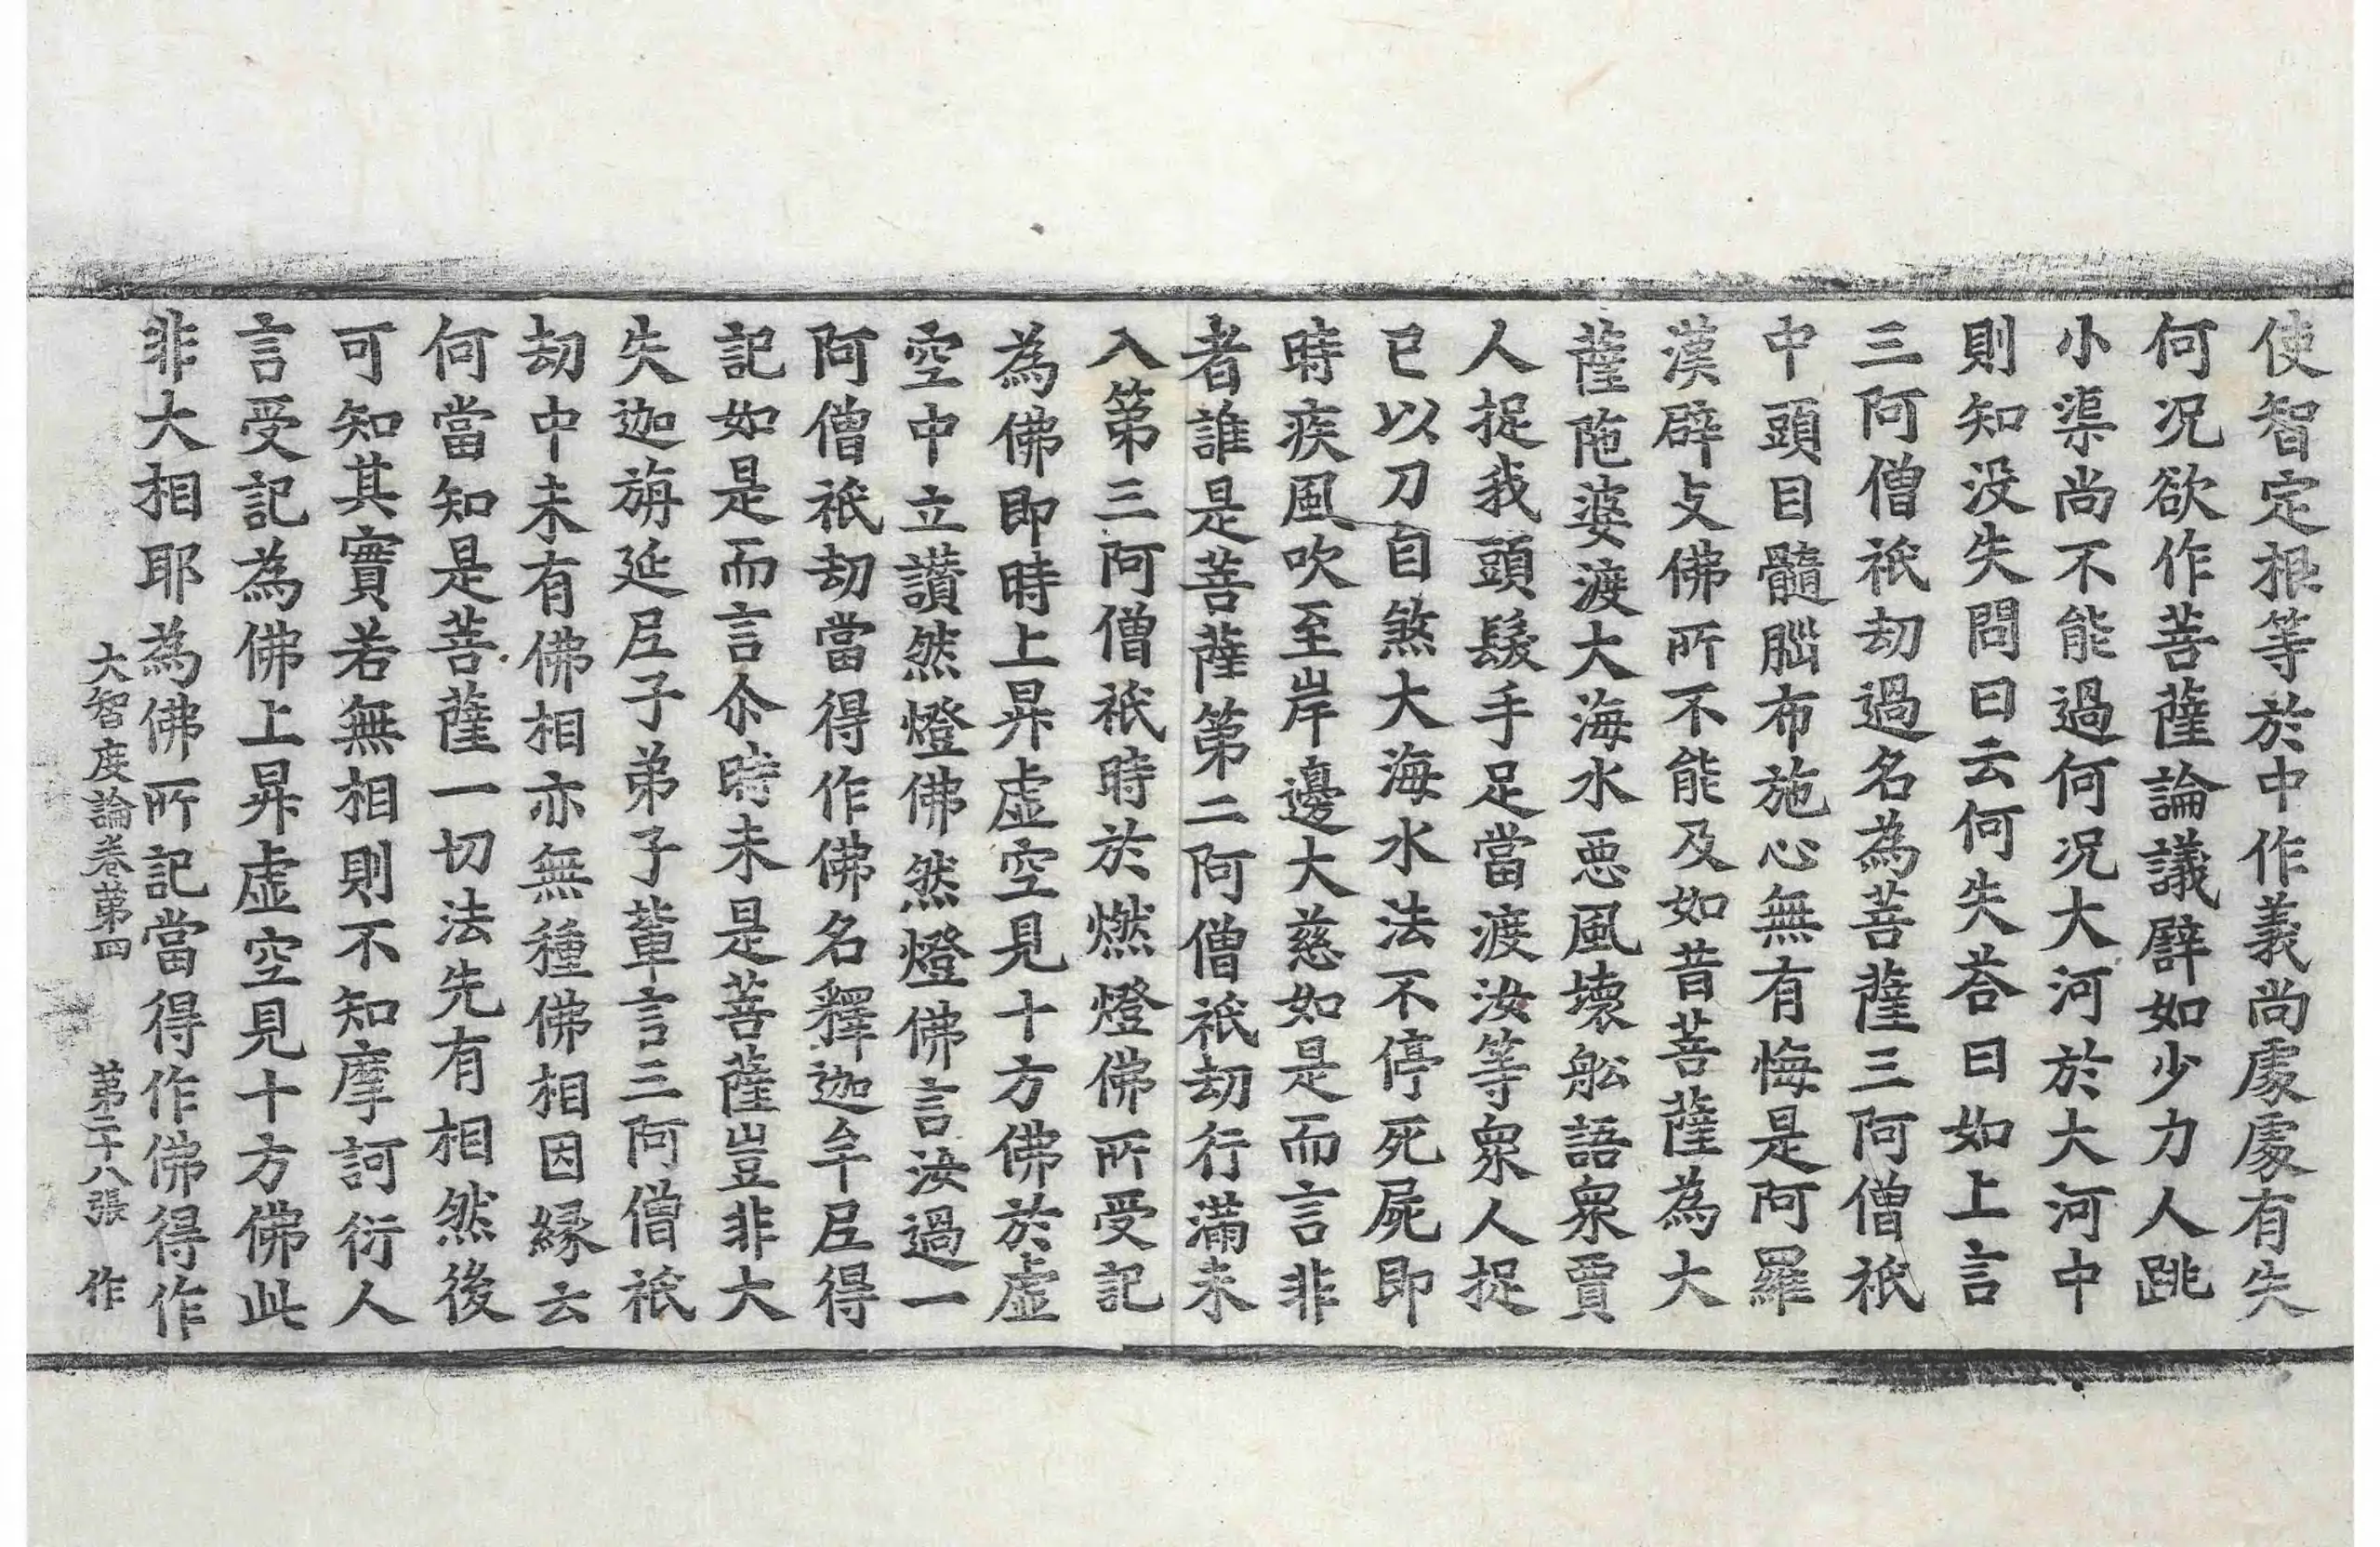 使智定根等於中作義尚處處有失
何况欲作菩薩論議譬如少力人跳
小渠尚不能過何况大河於大河中
則知没失問曰云何失荅曰如上言
三阿僧祇劫過名為菩薩三阿僧祇
中頭目髓腦布施心無有悔是阿羅
漢辟支佛所不能及如昔菩薩為大
薩陁婆渡大海水惡風壞舩語衆賈
人捉我頭髮手足當渡汝等衆人捉
已以刀自煞大海水法不停死屍即
時疾風吹至岸邊大慈如是而言非
者誰是菩薩第二阿僧祇劫行滿未
入第三阿僧祇時於燃燈佛所受記
為佛即時上昇虛空見十方佛於虛
空中立讚然燈佛然燈佛言汝過一
阿僧祇劫當得作佛名釋迦牟尼得
記如是而言尒時未是菩薩豈非大
失迦旃延尼子弟子輩言三阿僧祇
劫中未有佛相亦無種佛相因緣云
何當知是菩薩一切法先有相然後
可知其實若無相則不知摩訶衍人
言受記為佛上昇虛空見十方佛此
非大相耶為佛所記當得作佛得作
大智度論卷第四 第二十八張 作